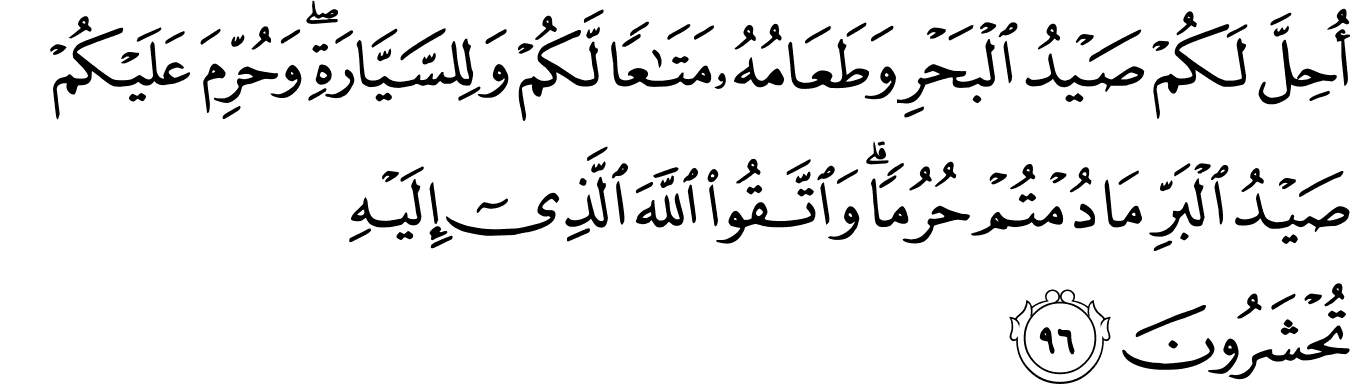 أُحِلَّ لَكُمْ صَيْدُ ٱلْبَحْرِ وَطَعَامُهُۥ مَتَـٰعًا لَّكُمْ وَلِلسَّيَّارَةِ ۖ وَحُرِّمَ عَلَيْكُمْ
صَيْدُ ٱلْبَرِّ مَا دُمْتُمْ حُرُمًا ۗ وَٱتَّقُوا۟ ٱللَّهَ ٱلَّذِىٓ إِلَيْهِ
تُحْشَرُونَ ٩٦